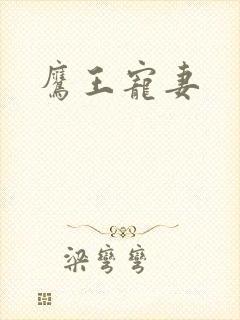 鷹王寵妻
梁彎彎